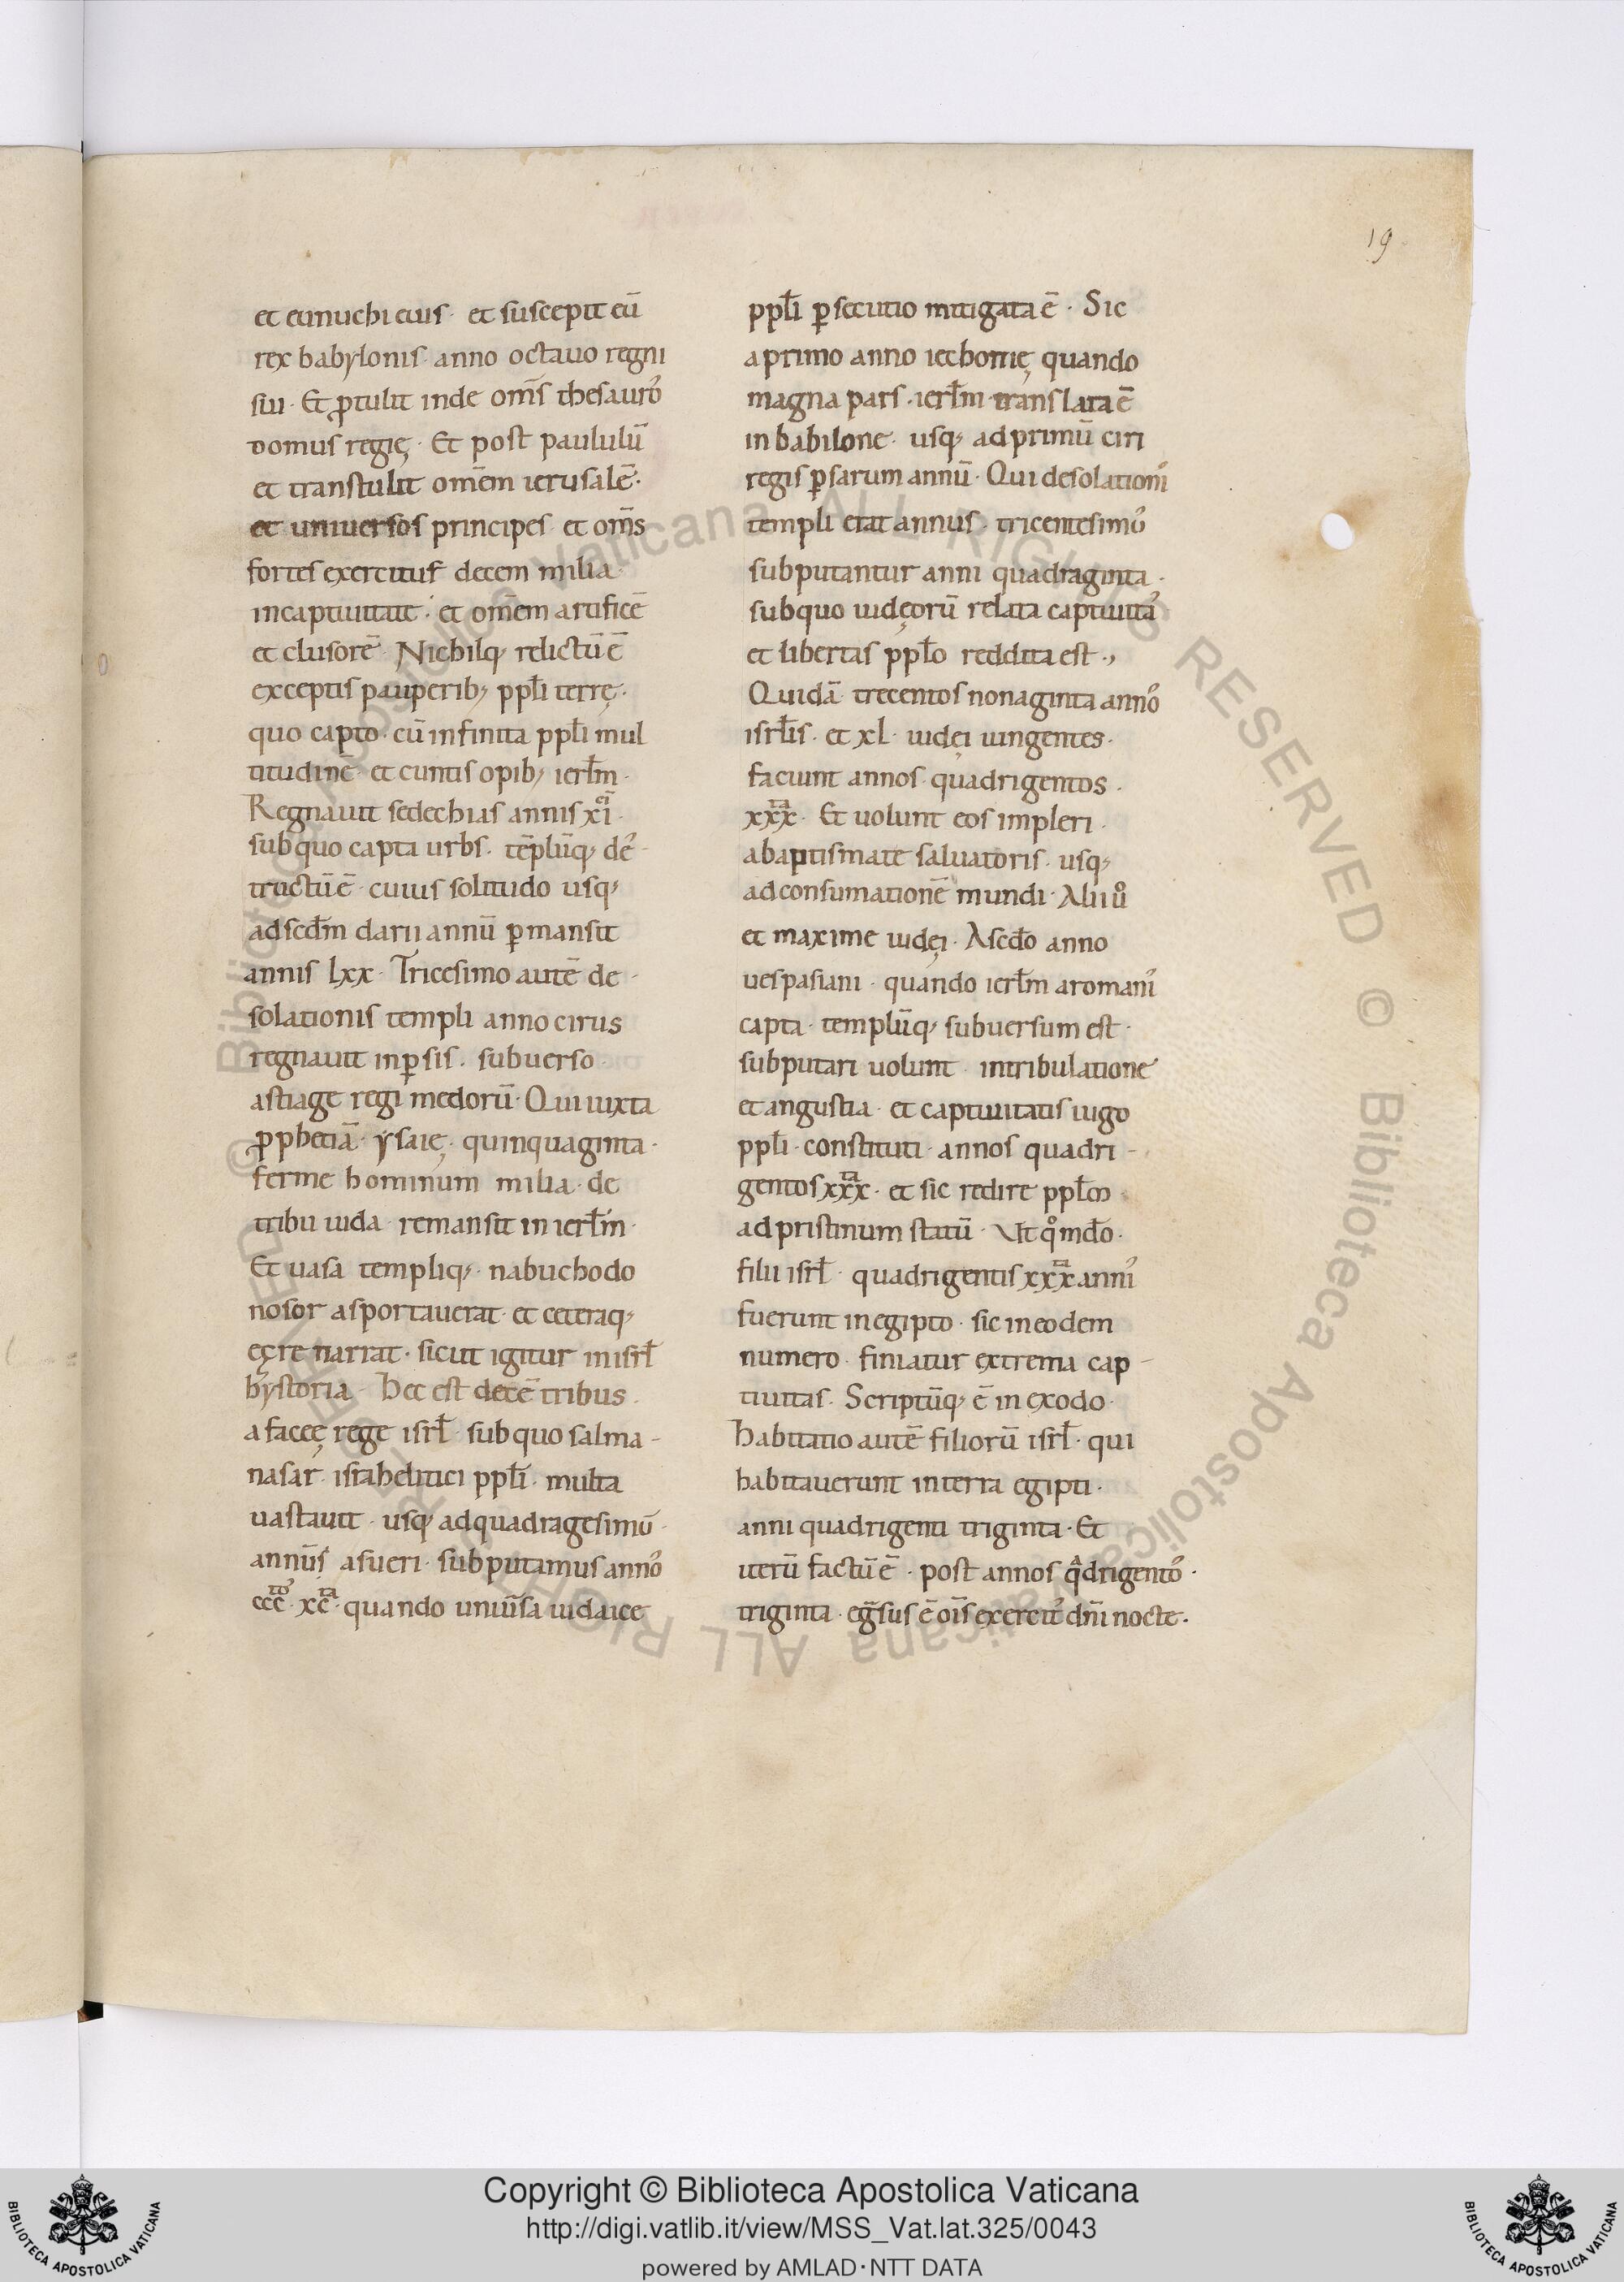 19
et eunuchi eius · et suscepit eū
rex babylonis · anno octauo regni
sui · Et ꝓtulit inde om̄s thesauro᾽
domus regię · Et post paululū
et transtulit omēm ierusalē·
et uniuersos principes et om̄s
fortes exercitus decem milia·
incaptiuitate · et omēm artificē
et clusorē · Nichilq; relictū ē
exceptis pauperib; ppl̄i terrę·
quo capto · cū infinita ppl̄i mul
titudinē · et cuntis opib; ierl̄m·
Regnauit sedechias annis xi·
sub quo capta urbs · tēplūq; de᾽-
tructū ē · cuius solitudo usq;
ad scd̄m darii annū ꝑmansit
annis lxx · Tricesimo autē de-
solationis templi anno cirus
regnauit inꝑsis · subuerso·
astiage regi medorū · Qui iuxta
ꝓphetiā · ysaię · quinquaginta·
ferme hominum milia · de
tribu iuda · remansit in ierl̄m·
Et uasa templiq; · nabuchodo
nosor asportauerat · et ceteraq;
ęęre narrat · sicut igitur inisrl̄
hystoria · Hec est decē tribus·
a faceę rege isrl̄ · sub quo salma-
nasar · israhelitici ppl̄i · multa
uastauit · usq; adquadragesimū·
annūs asueri · subputamus anno᾽
ccc · xc · quando uniūsa iudaice
ppl̄i ꝑsecutio mitigata ē · Sic
aprimo anno iechonię quando
magna pars · ierl̄m translata ē
in babilone · usq; adprimū ciri
regis ꝑsarum annū · Qui desolationi᾽
templi erat annus · tricentesimo᾽
subputantur anni quadraginta·
subquo iudęorū relata captiuita᾽
et libertas ppl̄o reddita est·,
Quidā trecentos nonaginta anno᾽
isrl̄is · et xl · iudęi iungentes·
faciunt annos quadrigentos·
xxx · Et uolunt eos impleri·
abaptismate saluatoris · usq;
adconsumationē mundi · Alii uo
et maxime iudęi · Ascd̄o anno
uespasiani · quando ierl̄m aromani᾽
capta · templūq; subuersum est·
subputari uolunt · intribulatione
et angustia · et captiuitatis iugo
ppl̄i · constituti · annos quadri-
gentos xxx · et sic redire ppl̄m
ad pristinum statū · Ut qom̄do·
filii isrl̄ · quadrigentis xxx anni᾽
fuerunt inegipto · sic ineodem
numero · finiatur extrema cap-
tiuitas · Scriptūq; ē in exodo·
Habitatio autē filiorū isrl̄ · qui
habitauerunt interra egipti·
anni quadrigenti triginta · Et
iterū factū ē · post annos qadrigento᾽·
triginta · egs̄sus ē oīs exercit᾽ dn̄i nocte·
Copyright © Biblioteca Apostolica Vaticana
http://digi.vatlib.it/view/MSS_Vat.lat.325/0043
powered by AMLAD·NTT DATA
BIBLIOTECA APOSTOLICA VATICANA
BIBLIOTECA APOSTOLICA VATICANA
© Biblioteca Apostolica Vaticana ALL RIGHTS RESERVED © Biblioteca Apostolica Vaticana ALL RIGHTS RESERVED